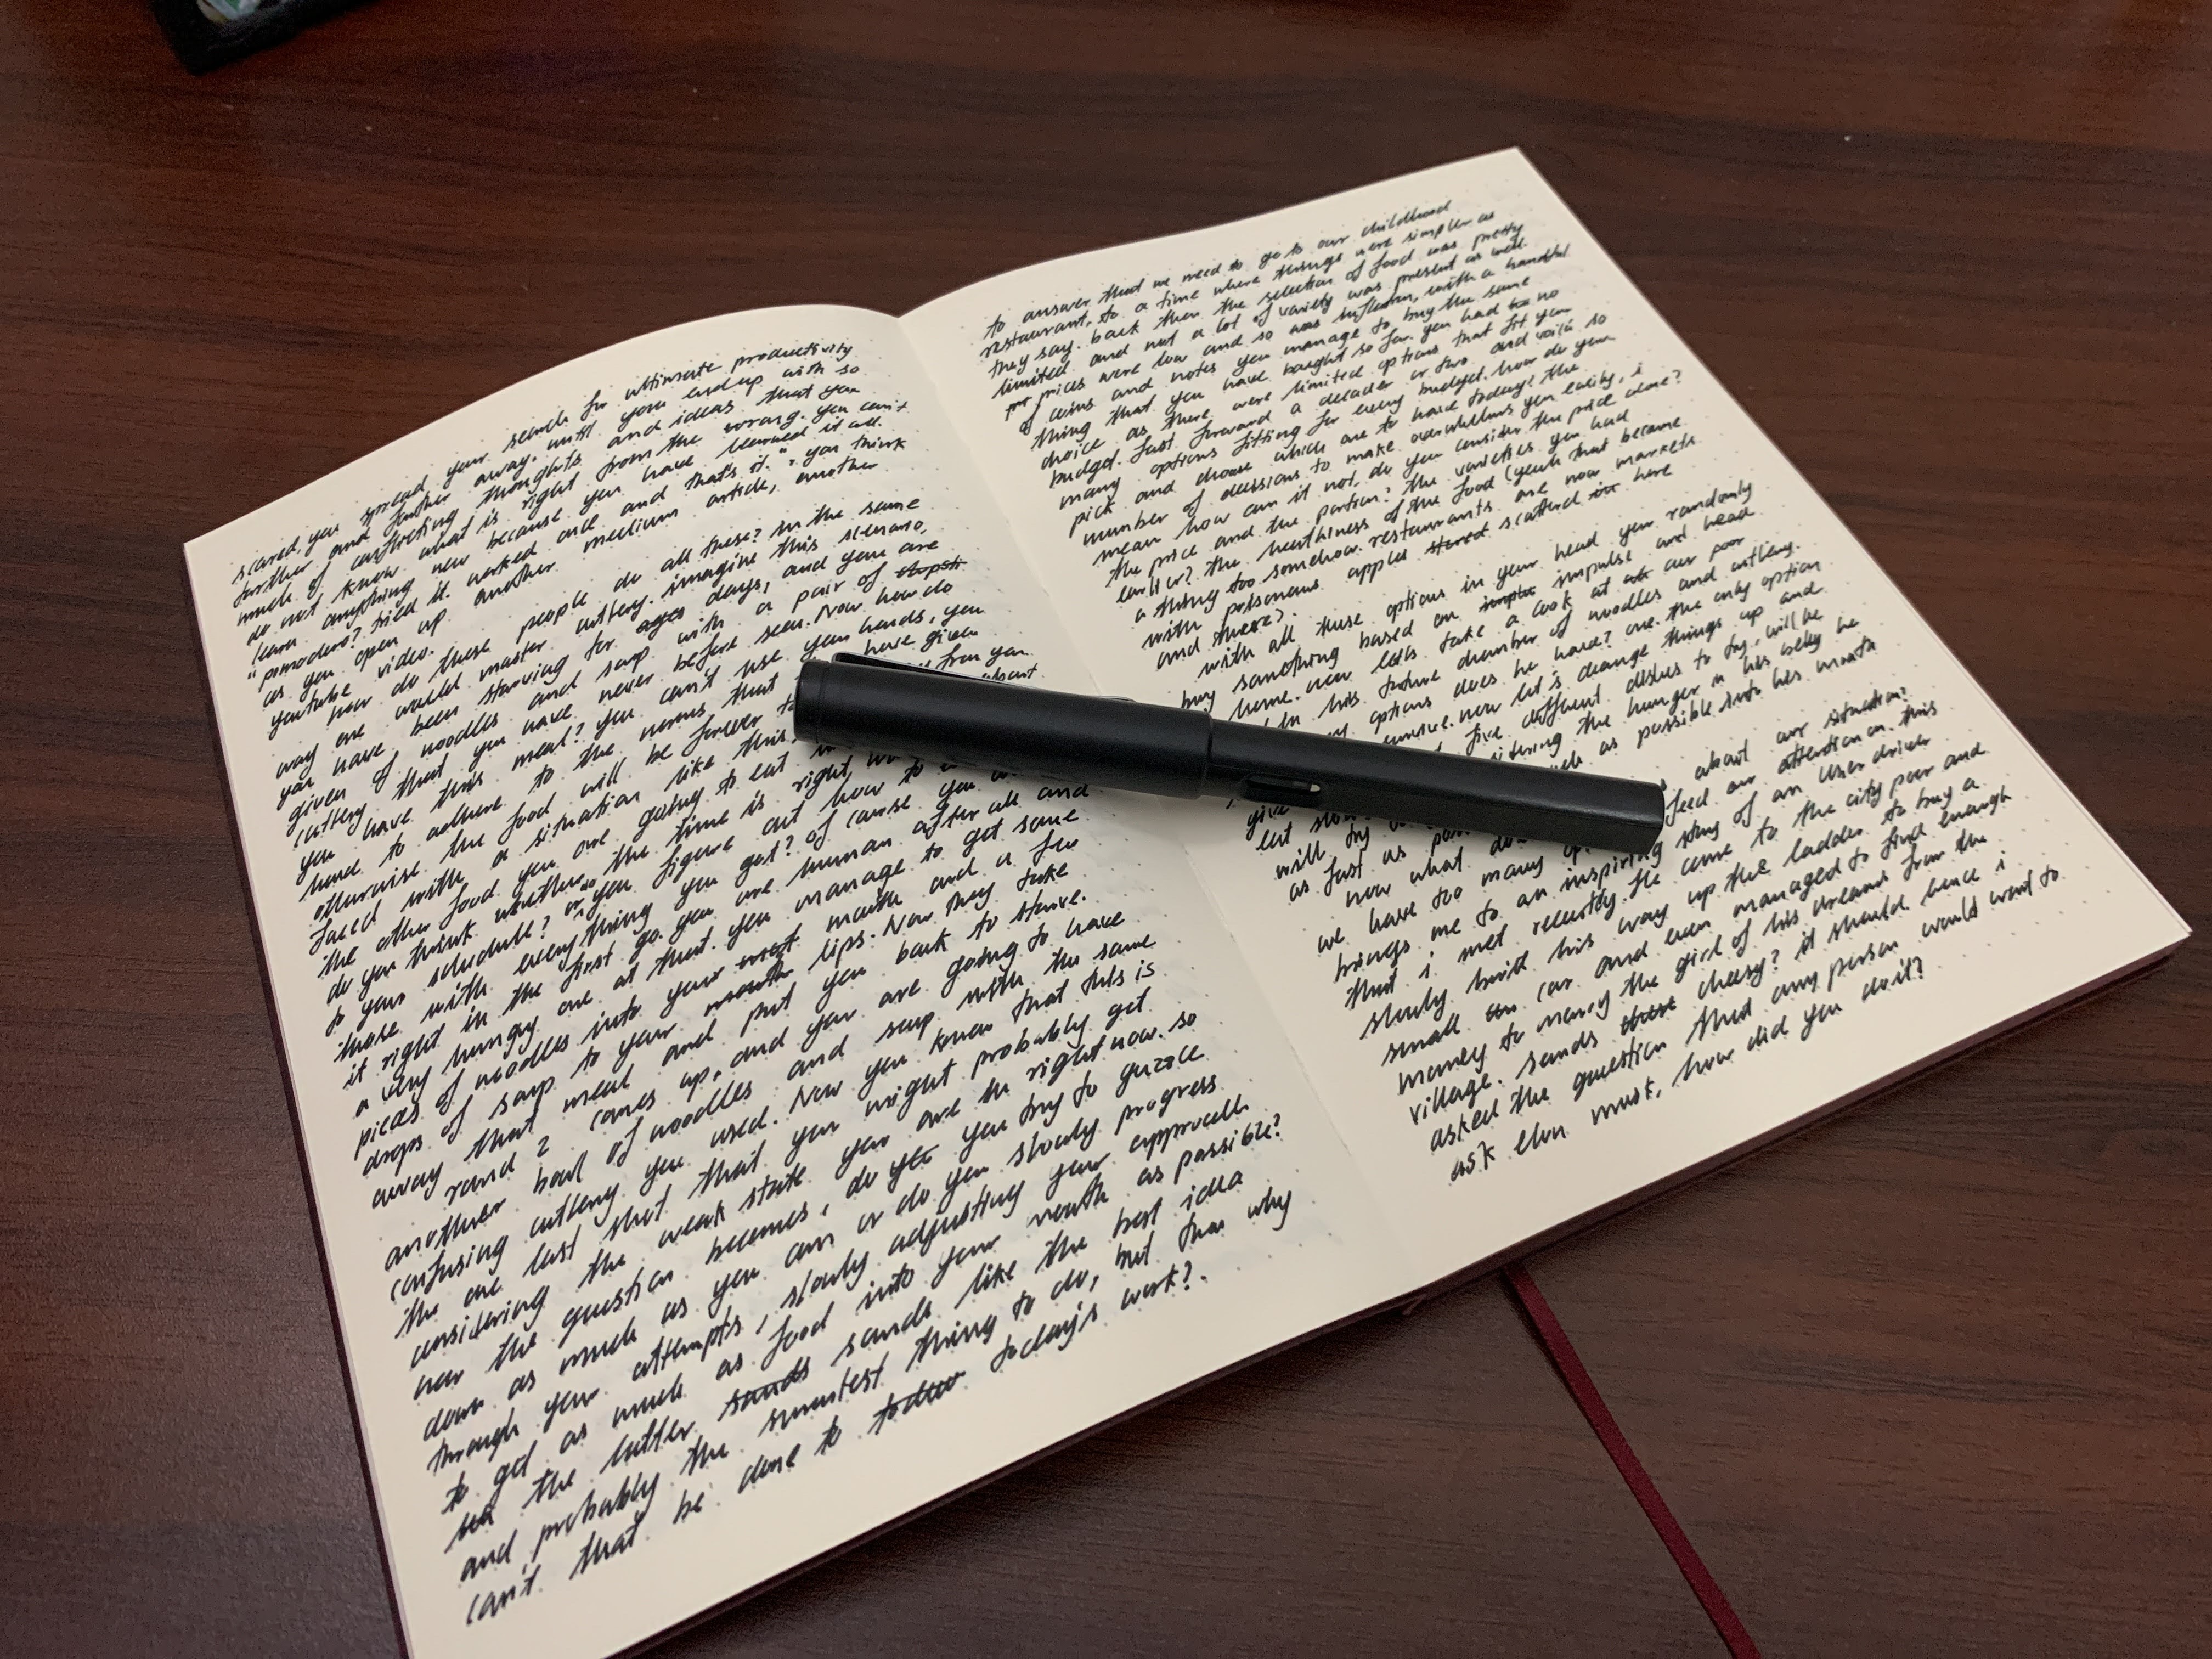 scared, you spread your search for ultimate productivity
further and further away. until you end up with so
much of contracting thoughts and ideas that you
do not know what is right from the wrong. you can't
learn anything new because you have learned it all.
"pomodoro? tried it. worked once and that's it.", you think
as you open up another medium article, another
youtube video.
how do these people do all these? in the same
way one would master cutlery. imagine this scenario,
you have been starving for ages days, and you are
given of noodles and soup with a pair of chopsti
cutlery that you have never before seen. Now how do
you have this meal? you can't use your hands, you
have to adhere to the norms that have given
otherwise the food will be forever from you
faced with a situation like this, about
the other food you are going to eat in
do you think whether the time is right,
is your schedule? or do you figure out how to
those with everything you got? of course you
it right in the first go. you are human after all and
a very hungry one at that. you manage to get some
pieces of noodles into your mout mouth and a few
drops of soup to your mouth lips. Now they take
away that meal and put you back to starve.
round 2 comes up, and you are going to have
another bowl of noodles and soup with the same
confusing cutlery you used. Now you know that this is
the one last shot that you might probably get
considering the weak state you are in right now. so
now the question becomes, do ye you try to guzzle
down as much as you can or do you slowly progress
through your attempts, slowly adjusting your approach
to get as much as food into your mouth as possible?
the latter sounds sounds like the best idea
and probably the smartest thing to do, but then why
can't that be done to todaw today's work?
to answer that we need to go to our childhood
restaurant, to a time where things were simpler as
they say. back then the selection of food was pretty
limited and not a lot of variety was present as well.
prices were low and so was inflation, with a handful
of coins and notes you manage to buy the same
thing that you have bought so far. you had no
choice as there were limited options that fit your
budget. fast forward a decade or two and voilà so
many options fitting for every budget. how do you
pick and choose which one to have today? the
number of decisions to make overwhelms you easily, i
mean how can it not, do you consider the price alone?
the price and the portion? the varieties you had
earlier? the healthiness of the food (yeah that became
a thing too somehow. restaurants are now markets
with poisonous apples stored scattered in here
and there)
with all these options in your head you randomly
buy something based on impulse and head
home. now lets take a look at our poor
in his torture chamber of noodles and cutlery.
options does he have? one. the only option
survive. now let's change things up and
give five different dishes to try, will he
eat slow considering the hunger in his belly he
will try as much as possible into his mouth
as fast as
now what do about our situation?
we have too many feed our attention on. this
brings me to an inspiring story of an Uber driver
that i met recently. he came to the city poor and
slowly built his way up the ladder to buy a
small car and even managed to find enough
money to marry the girl of his dreams from the
village. sounds cheesy? it should hence i
asked the question that any person would want to
ask elon musk, how did you do it?